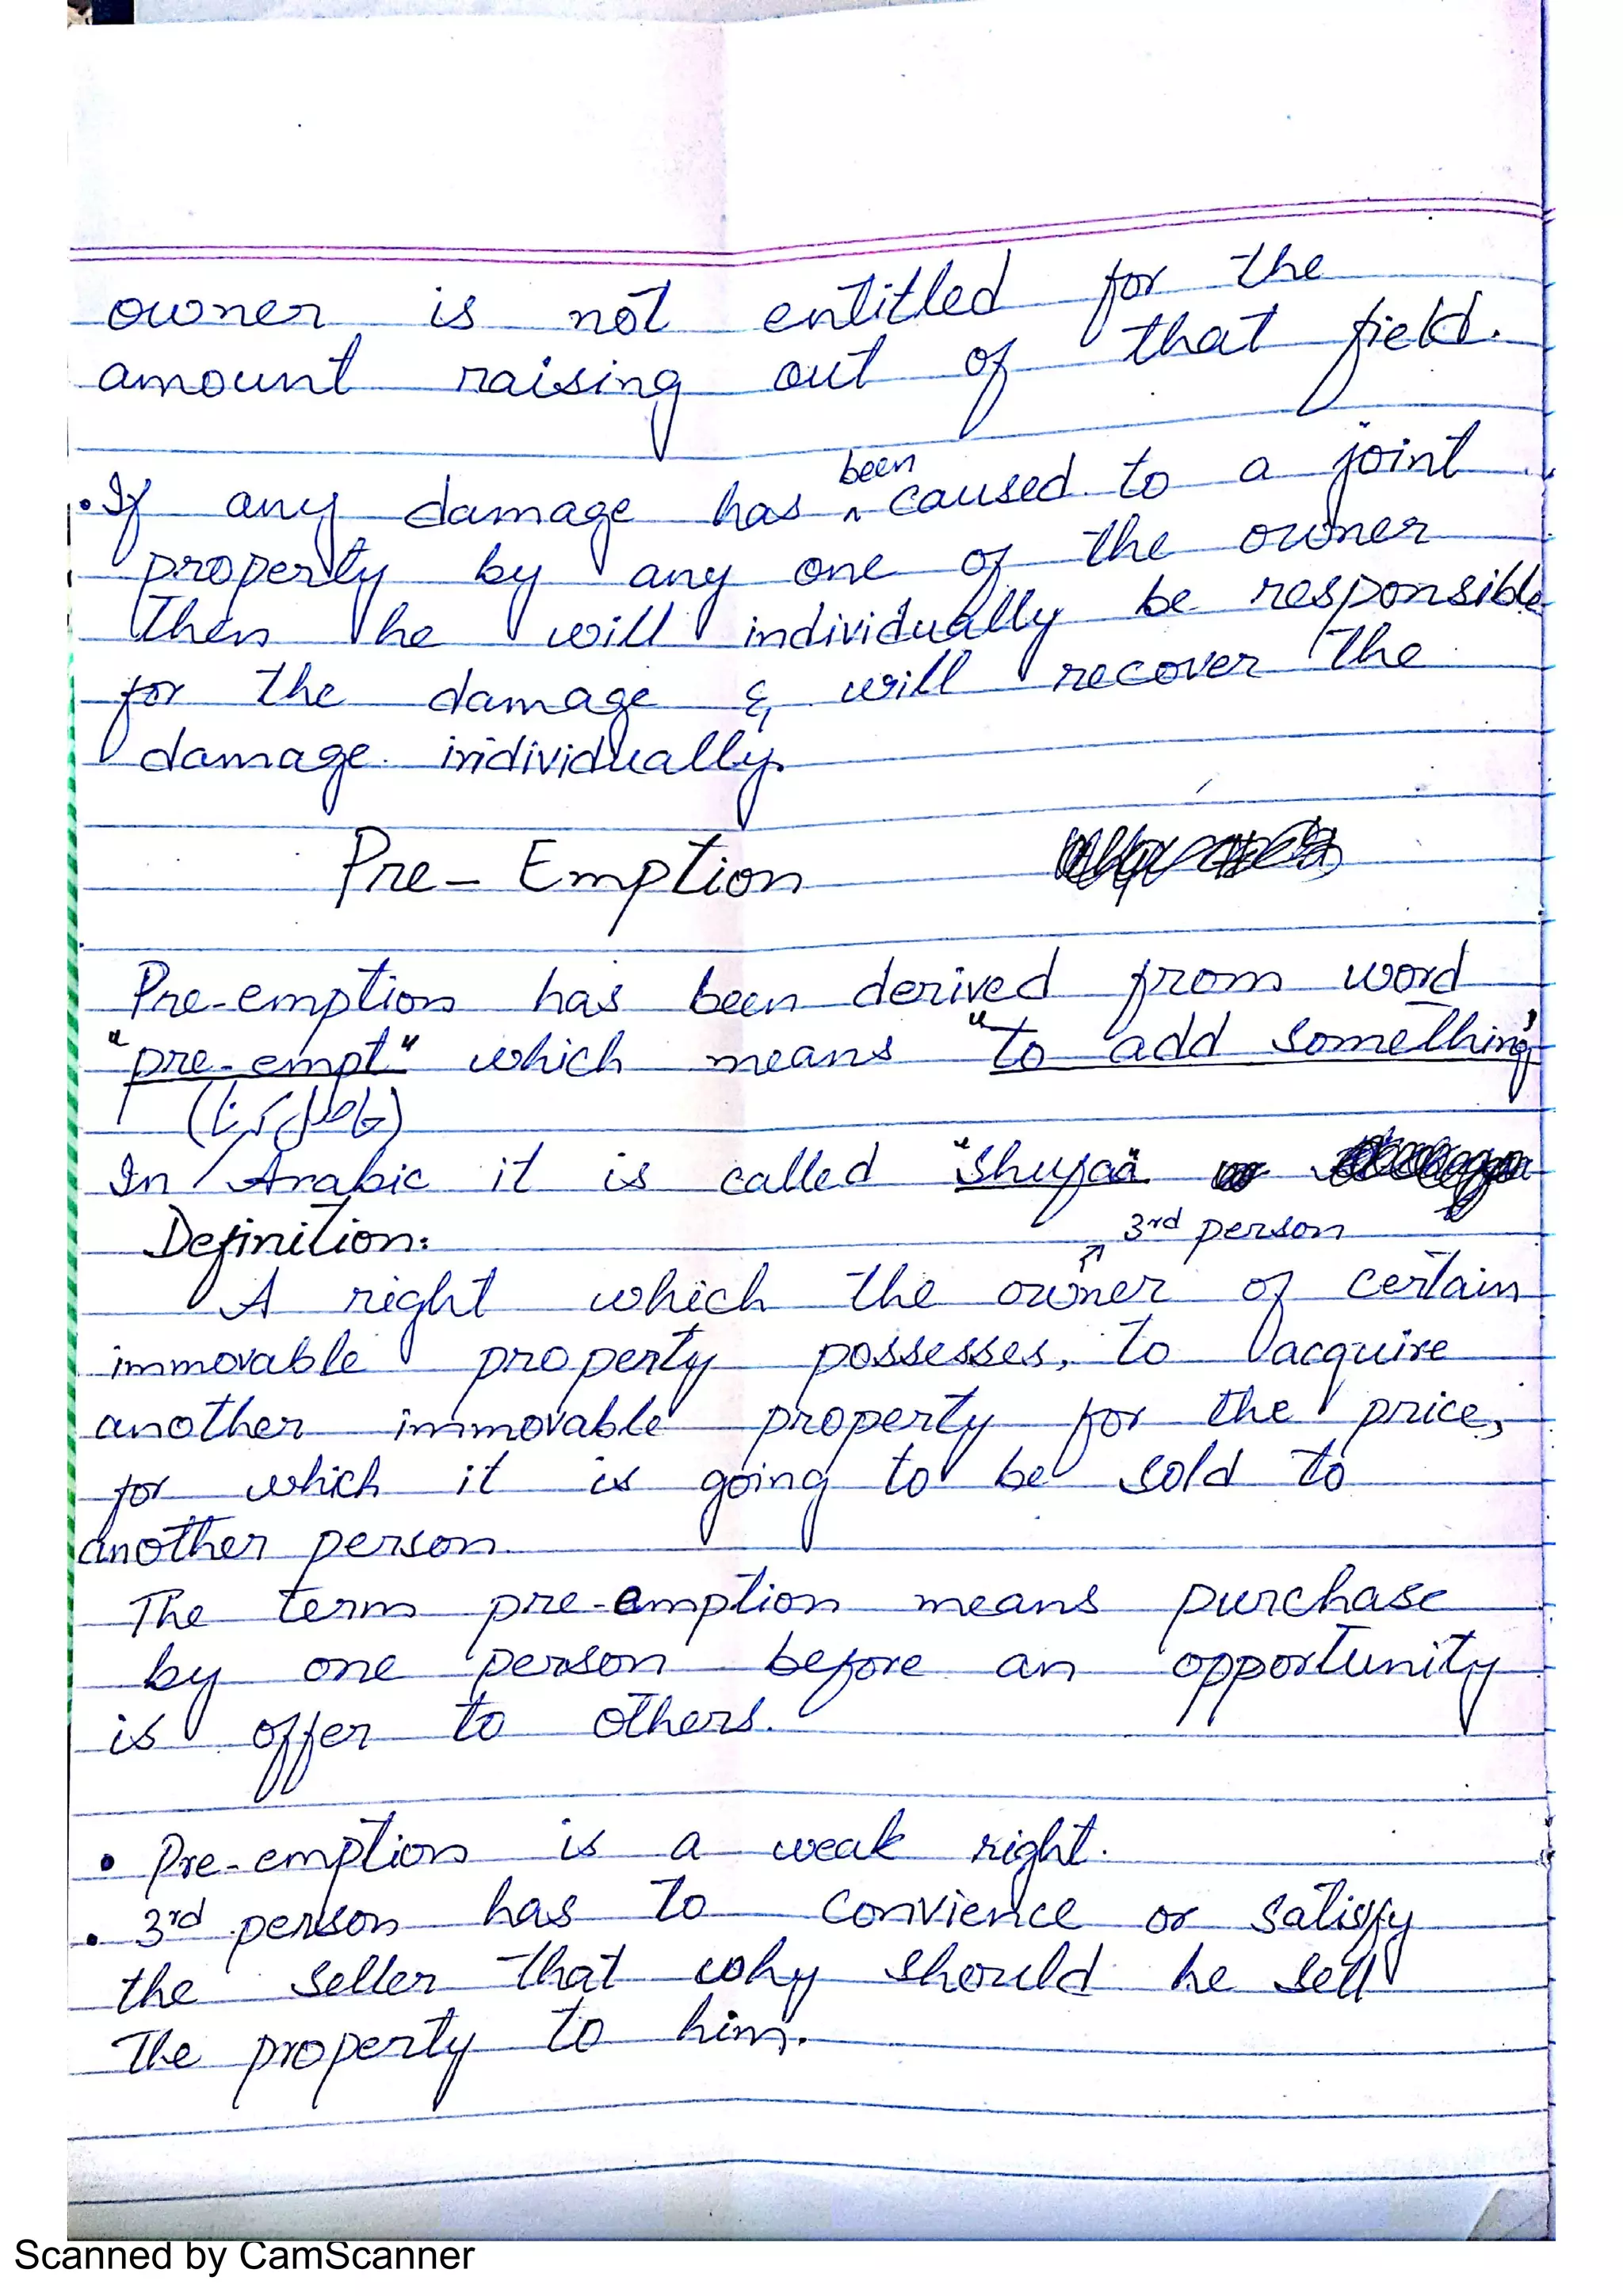 owner is not entitled for the
amount raising out of that field.
• If any damage has been caused to a joint
property by any one of the owner
then he will individually be responsible
for the damage & will recover the
damage individually.
Pre-Emption
Pre-emption has been derived from word
"pre-empt" which means "to add something"
In Arabic it is called "Shufaa"
Definition:
3rd person
A right which the owner of certain
immovable property possesses, to acquire
another immovable property for the price,
for which it is going to be sold to
another person.
The term pre-emption means purchase
by one person before an opportunity
is offer to others.
• Pre-emption is a weak right.
• 3rd person has to convience or satisfy
the seller that why should he sell
The property to him.
Scanned by CamScanner